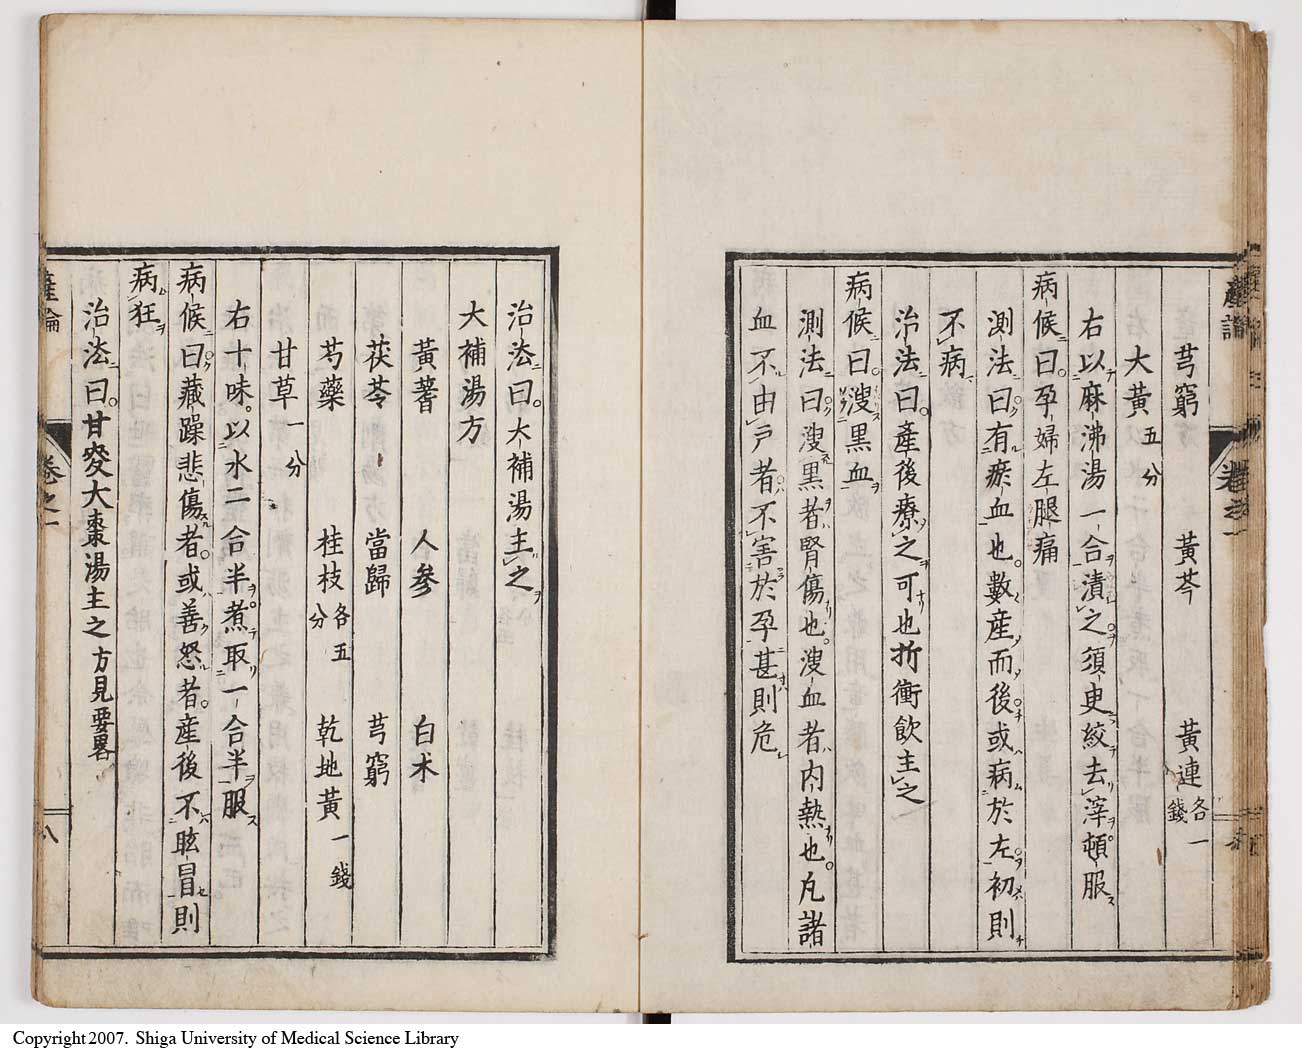 芎窮 黃芩 黃連各一錢
大黃五分
右以麻沸湯一合漬之須臾絞去滓頓服
病候曰孕婦左腿痛
測法曰有瘀血也數産而後或病於左初則
不病
治法曰産後療之可也折衝飲主之
病候曰溲黑血
測法曰溲黑者腎傷也溲血者内熱也凡諸
血不由戸者不害於孕甚則危
産論 卷之一
治法曰大補湯主之
大補湯方
黃蓍 人參 白朮
茯苓 當歸 芎窮
芍藥 桂枝各五分 乾地黃一錢
甘草一分
右十味以水二合半煮取一合半服
病候曰藏躁悲傷者或善怒者産後不眩冒則
病狂
治法曰甘麥大棗湯主之方見要畧
産論 卷之一 八
Copyright 2007. Shiga University of Medical Science Library